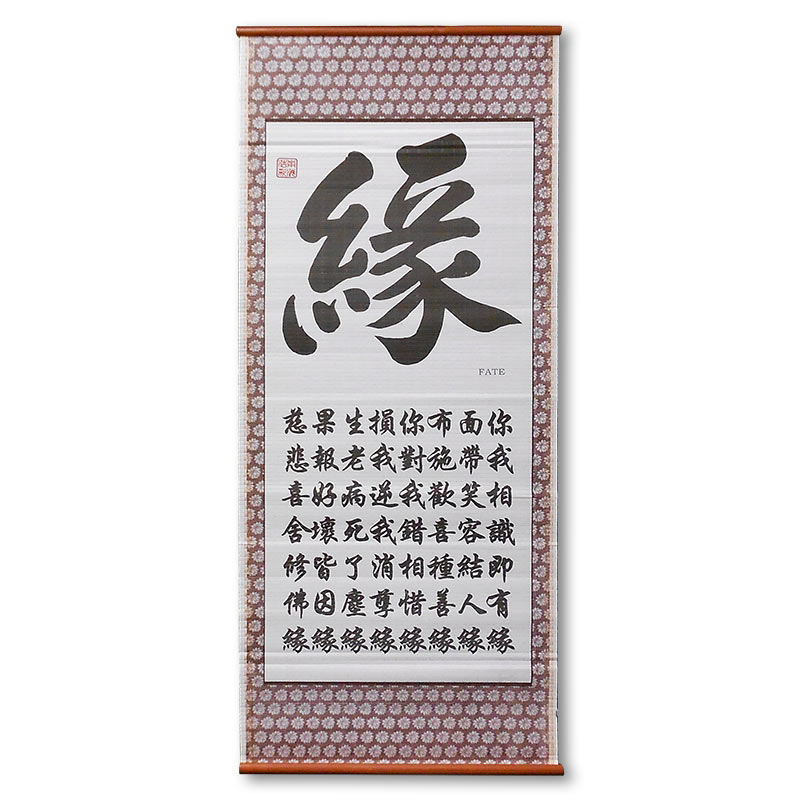 緣
FATE
你我相識即有緣
面帶笑容結人緣
布施歡喜種善緣
你對我錯相惜緣
損我逆我消孽緣
生老病死了塵緣
果報好壞皆因緣
慈悲喜舍修佛緣